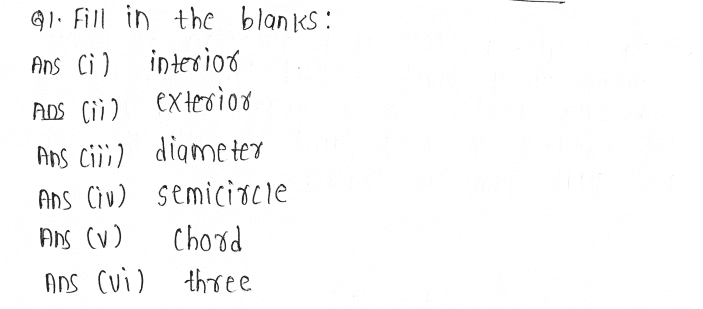 Q1. Fill in the blanks:
Ans (i) interior
Ans (ii) exterior
Ans (iii) diameter
Ans (iv) semicircle
Ans (v) chord
Ans (vi) three